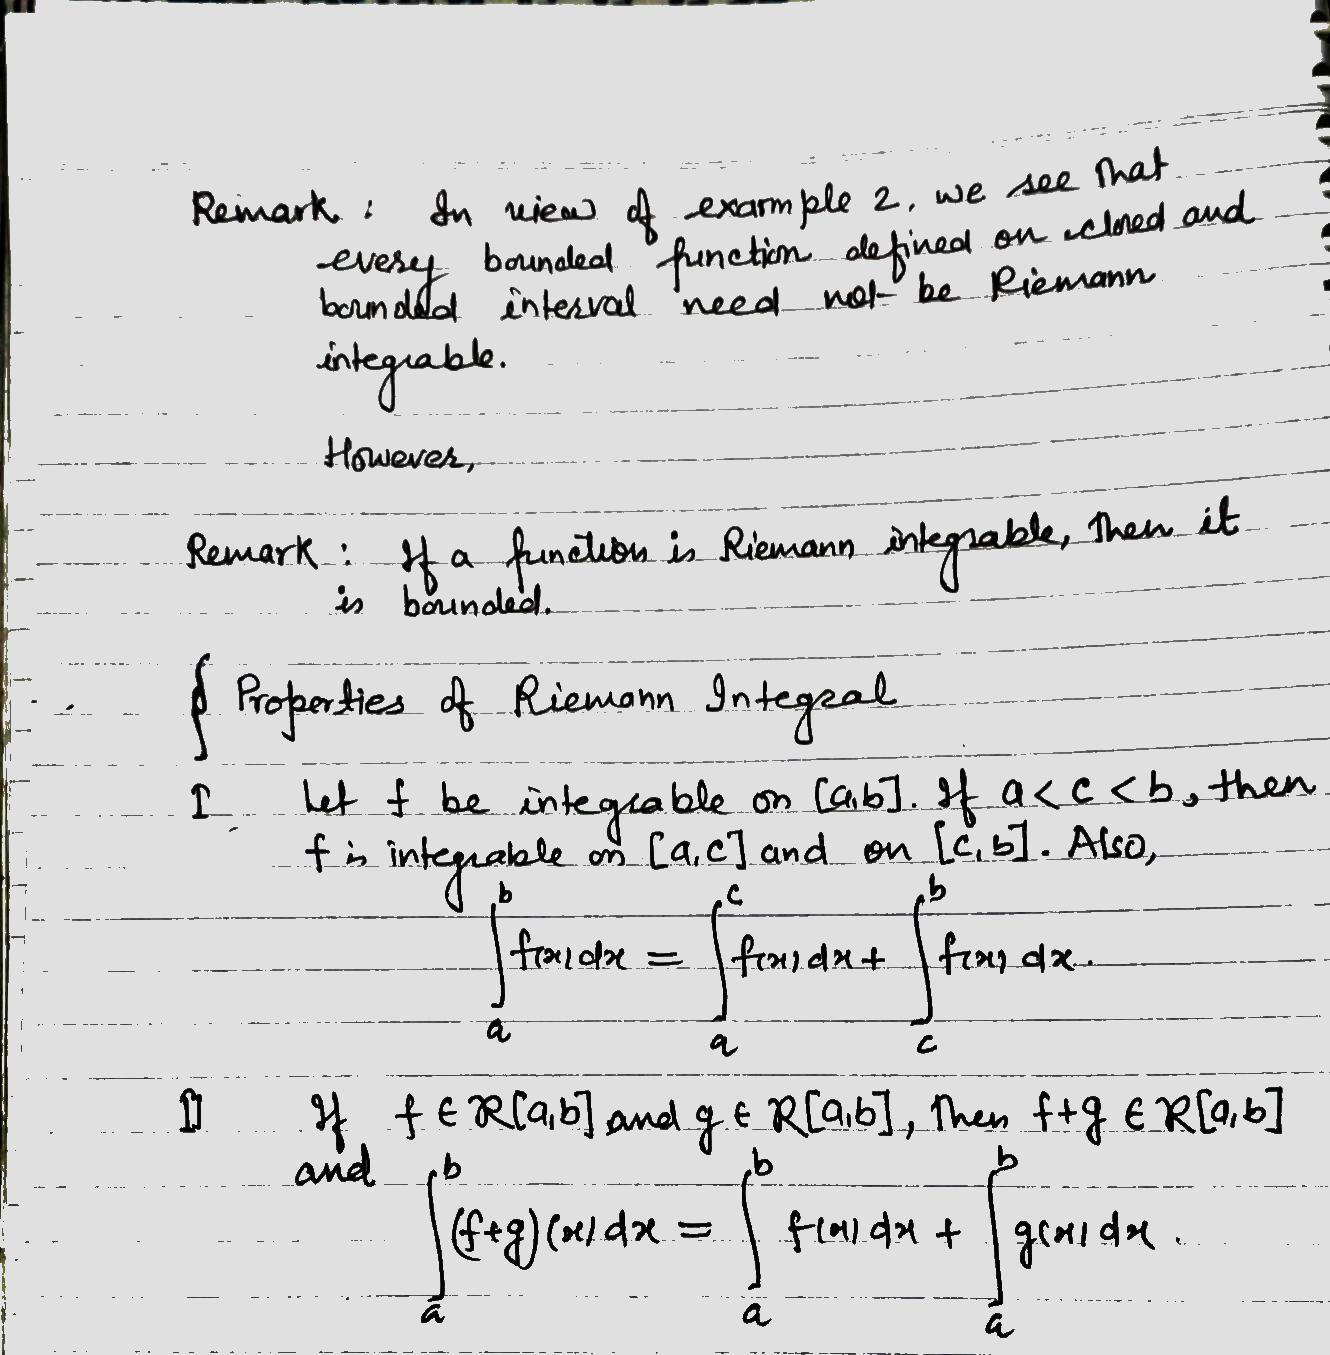 Remark : In view of example 2, we see that
every bounded function defined on closed and
bounded interval need not be Riemann
integrable.
However,
Remark : If a function is Riemann integrable, then it
is bounded.
§ Properties of Riemann Integral
I Let f be integrable on [a,b]. If a < c < b, then
f is integrable on [a,c] and on [c,b]. Also,
∫_a^b f(x) dx = ∫_a^c f(x) dx + ∫_c^b f(x) dx.
II If f ∈ R[a,b] and g ∈ R[a,b], then f+g ∈ R[a,b]
and ∫_a^b (f+g)(x) dx = ∫_a^b f(x) dx + ∫_a^b g(x) dx.